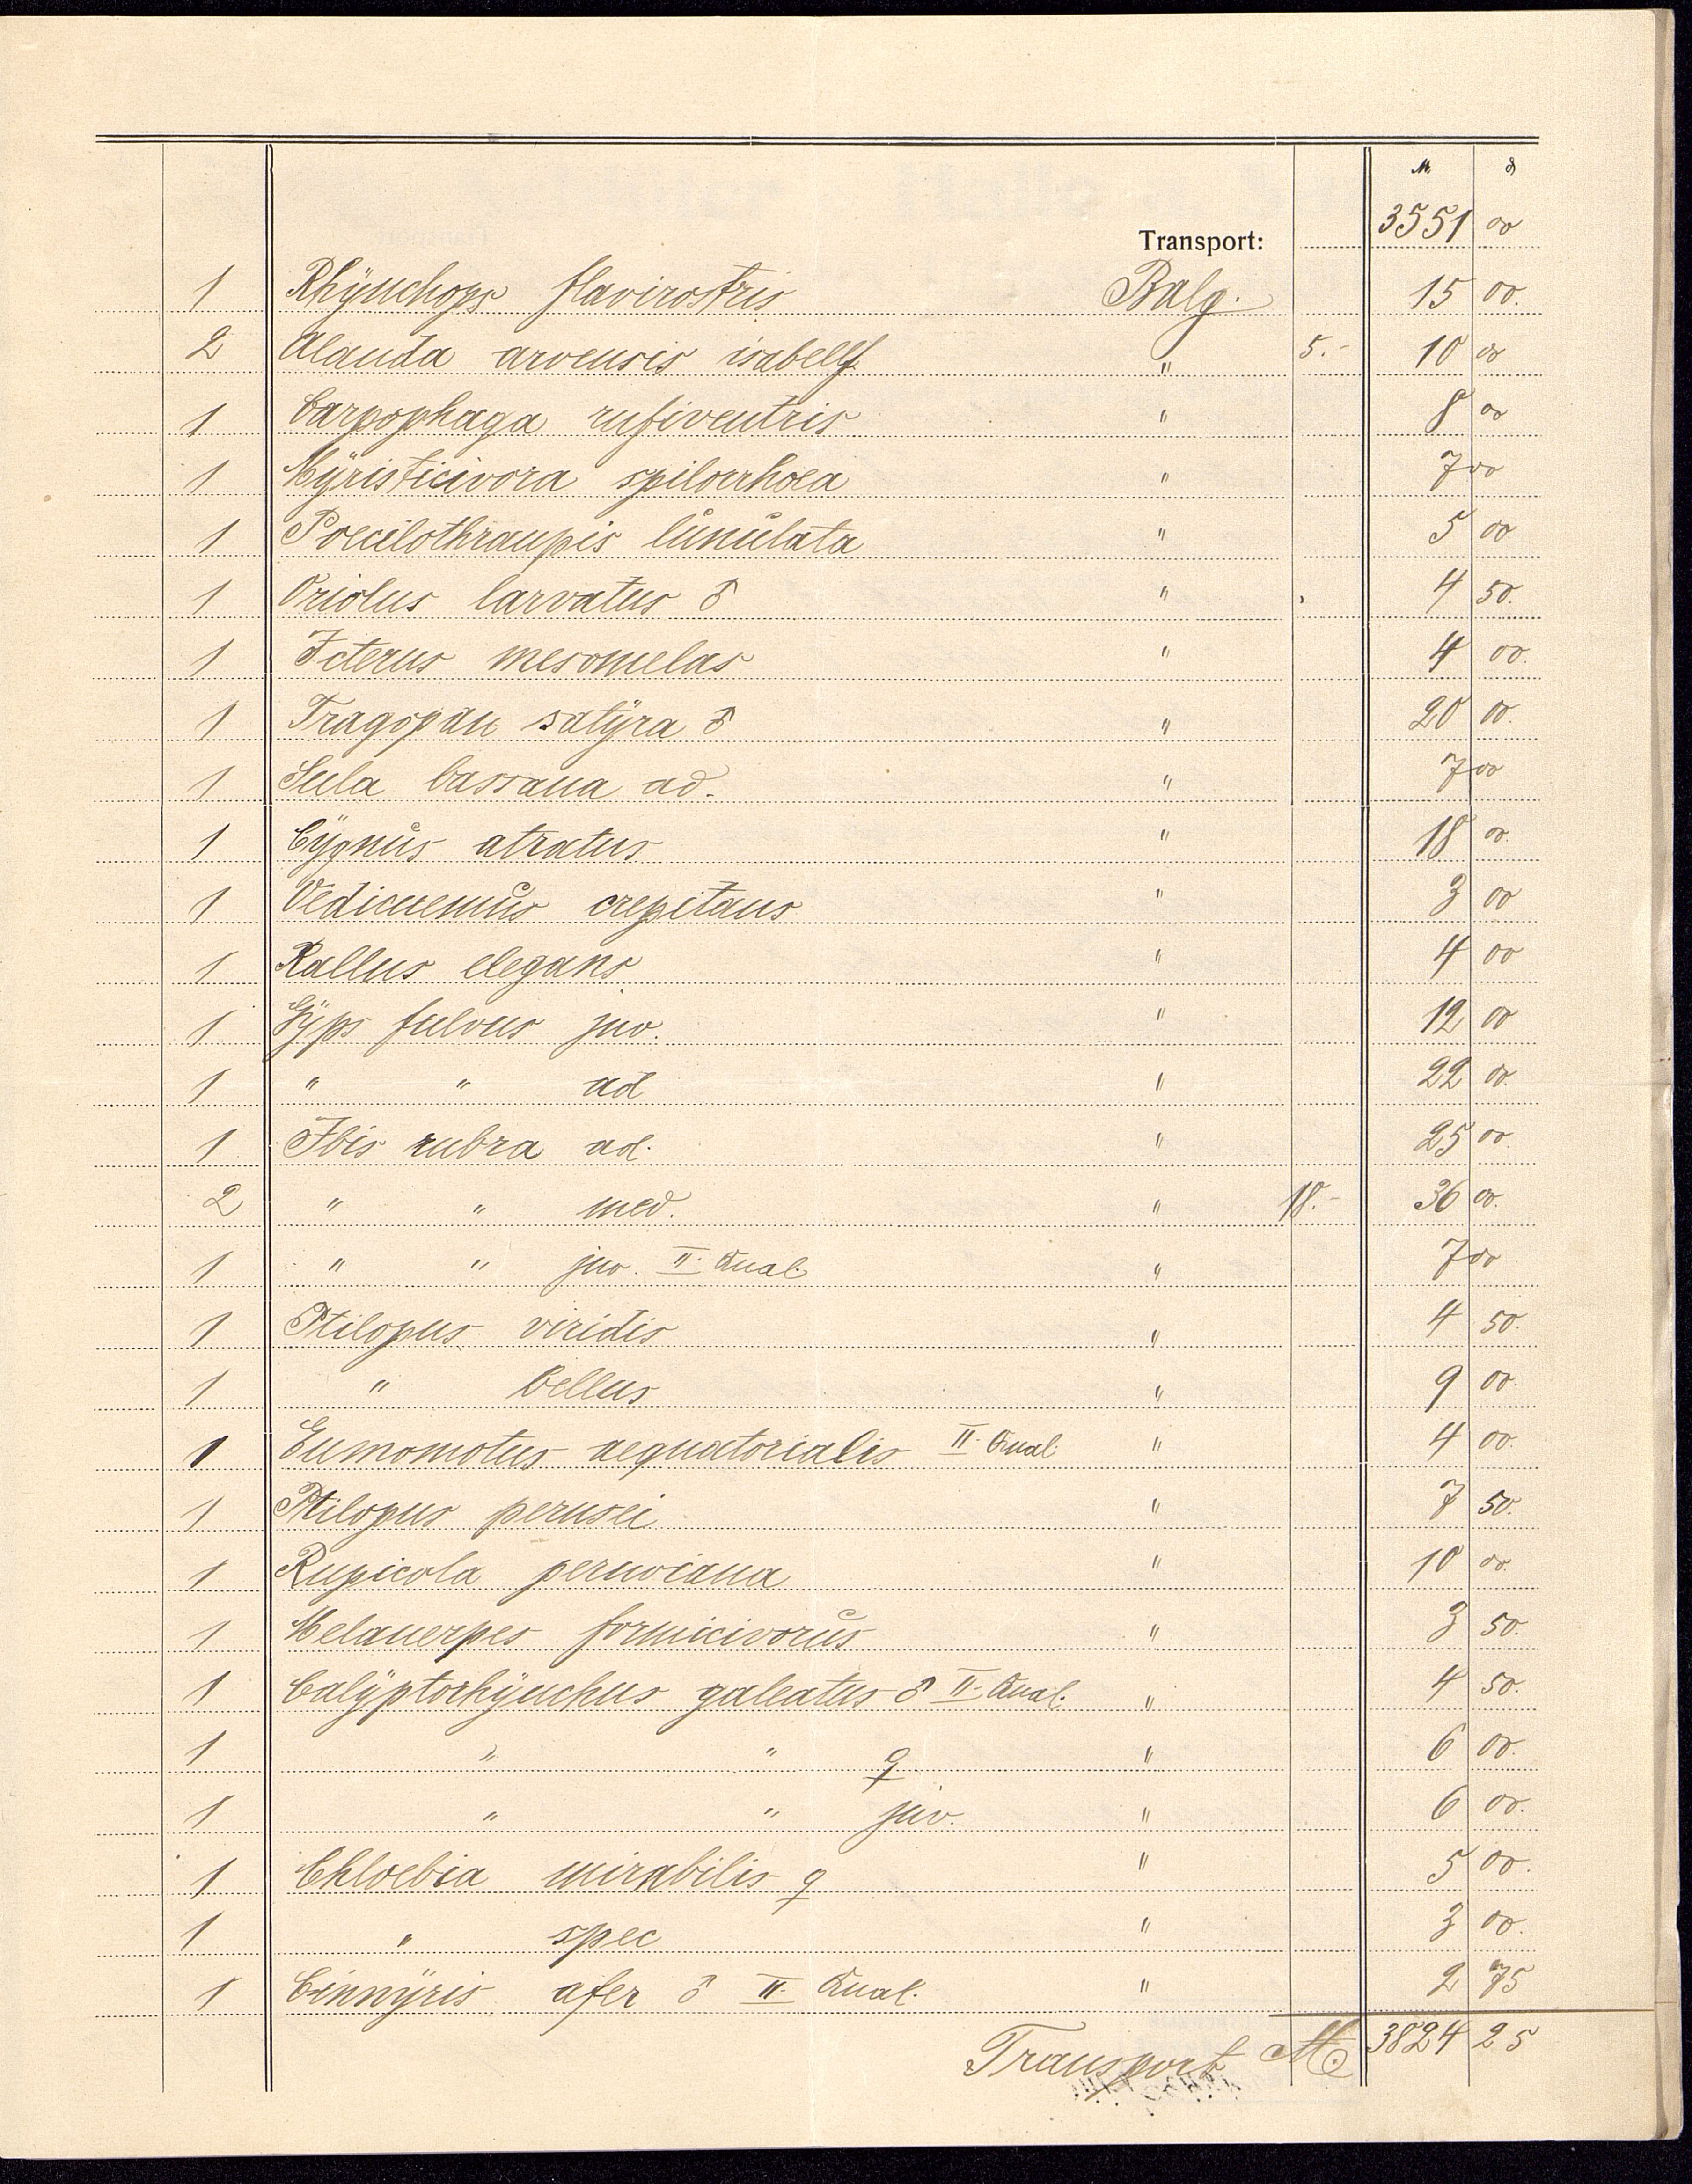 M. ₰
Transport: 3551 00
1 Rhÿnchops flavirostris Balg. 15 00.
2 Alauda arvensis isabellf. " 5.- 10 00
1 Carpophaga rufiventris " 8 00
1 Mÿristicivora spilorrhoea " 7 00
1 Poecilothraupis lunulata " 5 00
1 Oriolus larvatus ♂ " 4 50.
1 Icterus mesomelas " 4 00.
1 Tragopan satÿra ♂ " 20 00.
1 Sula bassana ad. " 7 00
1 Cÿgnus atratus " 18 00.
1 Oedicnemus crepitans " 3 00
1 Rallus elegans " 4 00
1 Gÿps fulvus juv. " 12 00
1 " " ad " 22 00.
1 Ibis rubra ad. " 25 00.
2 " " med. " 18.- 36 00.
1 " " juv. II. Qual. " 7 00
1 Ptilopus viridis " 4 50.
1 " bellus " 9 00.
1 Eumomotus aequatorialis II. Qual. " 4 00.
1 Ptilopus perusei " 7 50.
1 Rupicola peruviana " 10 00.
1 Melanerpes formicivorus " 3 50.
1 Calÿptorhÿnchus galeatus ♂ II. Qual. " 4 50.
1 " " ♀ " 6 00.
1 " " juv. " 6 00.
1 Chloebia mirabilis ♀ " 5 00.
1 " spec " 3 00.
1 Cinnÿris afer ♂ II. Qual. " 2 75
Transport M. 3824 25